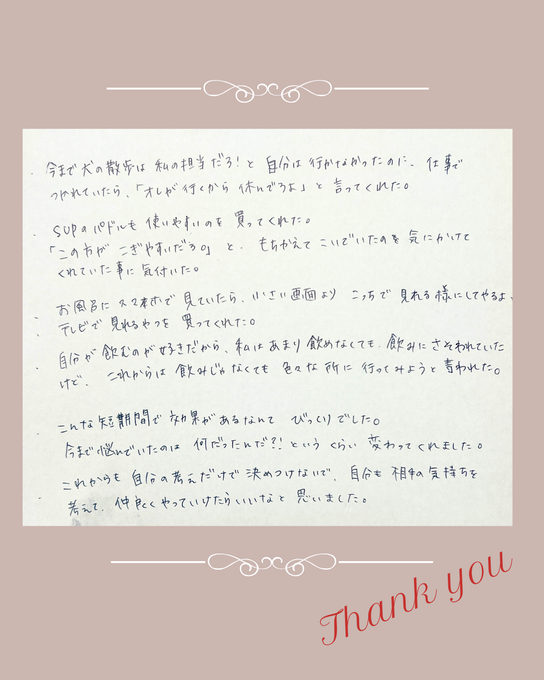 ・今まで犬の散歩は私の担当だろ！と自分は行かなかったのに、仕事で
つかれていたら、「オレが行くから休んでろよ」と言ってくれた。
・SUPのパドルも使いやすいのを買ってくれた。
「この方がこぎやすいだろ。」と、もちかえてこいでいたのを気にかけて
くれていた事に気付いた。
・お風呂にスマホで見ていたら、小さい画面よりこっちで見れる様にしてやるよ、
・テレビで見れるやつを買ってくれた。
・自分が飲むのが好きだから、私はあまり飲めなくても、飲みにさそわれていた
けど、これからは飲みじゃなくても色々な所に行ってみようと言われた。
こんな短期間で効果があるなんてびっくりでした。
今まで悩んでいたのは何だったんだ?!というくらい変わってくれました。
これからも自分の考えだけで決めつけないで、自分も相手の気持ちを
考えて、仲良くやっていけたらいいなと思いました。
Thank you